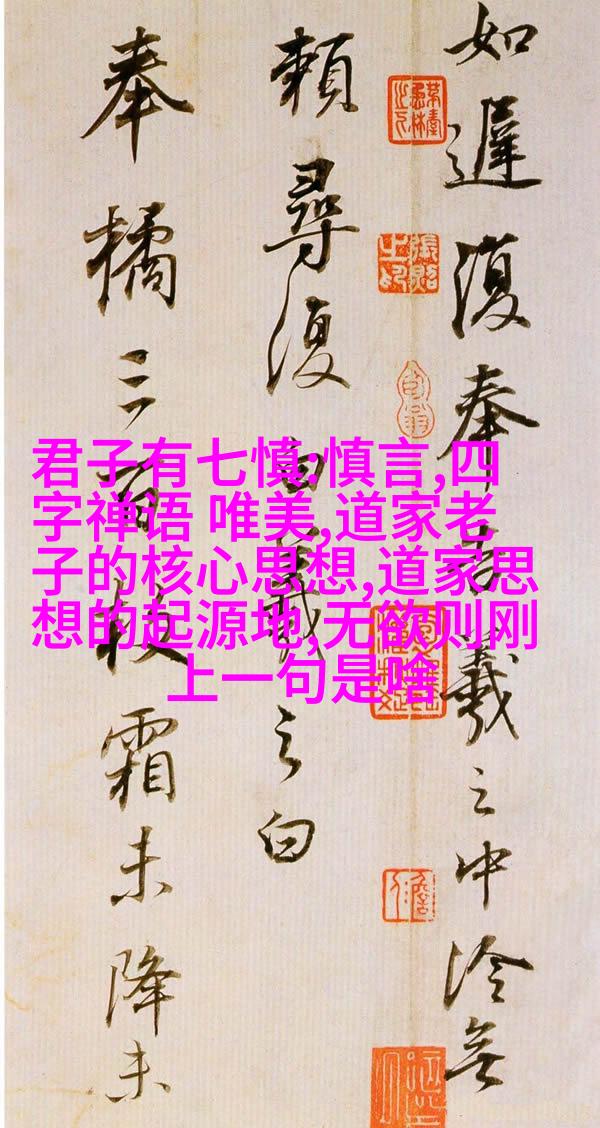 如遲復奉羲之中冷無
賴尋復白羲之白
奉橘三百枚霜未降未
君子有七慎:慎言,四
字禅语 唯美,道家老
子的核心思想,道家思
想的起源地,无欲则刚
上一句是啥